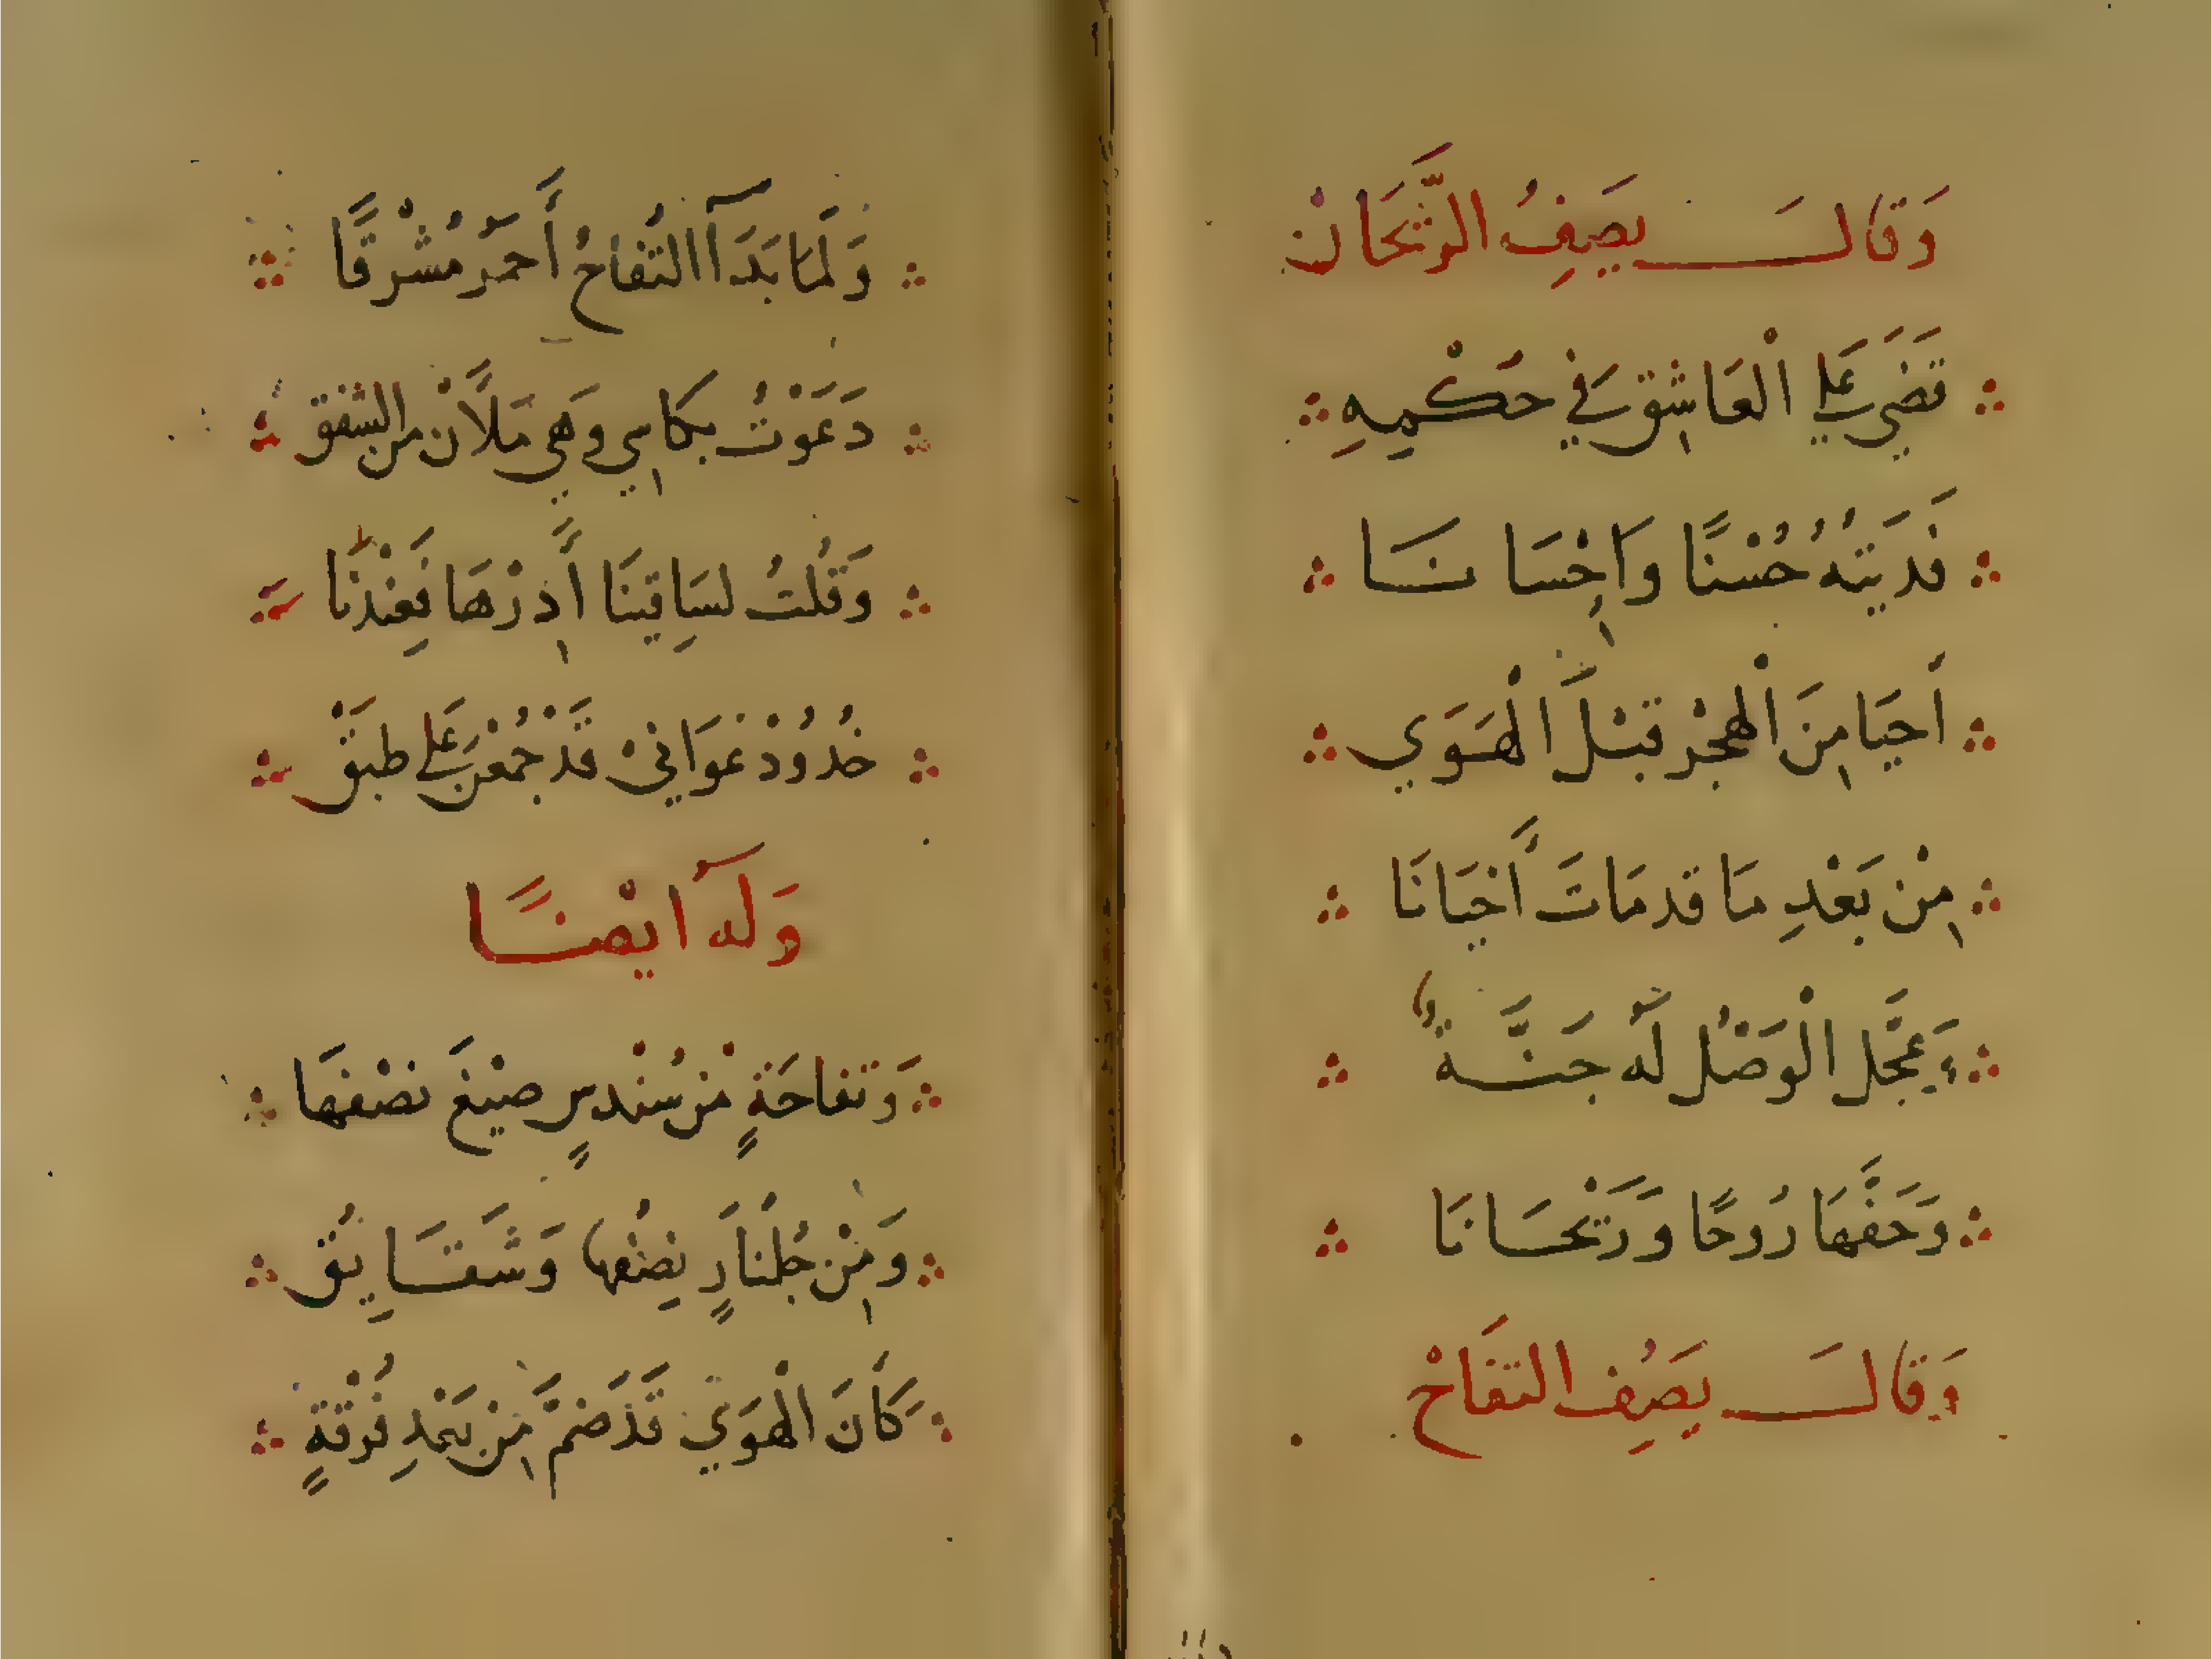 وَقَالَ يَصِفُ الرَّيْحَانْ
قَضَي عَلَي الْعَاشِقِ فِي حُكْمِهِ
فَدَيْتُهُ حُسْنًا وَإِحْسَانَا
أَحيَا مِنَ الْهجْرِ قَبْلَ الْهَوَي
مِنْ بَعْدِ مَا قد مَاتَ أَحْيَانَا
وَعَجَّل الْوَصْلُ لَهُ جَنَّةً
وَحَفَّهَا رَُوحًا وَرَيْحَانَا
وَقَالَ يَصِفُ التفَاحْ
وَلَمَا بَدَآ التُفاحُ أَحمَرَ مُشْرِقًا
دَعَوْتُ بكَاسِي وَهْيَ مَلَآن من الشفق
وَقُلتُ لسَاقِينَا أَدِرْهَا فَعِنْدَنَا
خُدُودُ غَوَانِيْ قَدْ جُمْعنَ عَلَي طبَقْ
وَلَهُ ايْضًا
وَتفاحَةٍ مْن سُنْدسٍ صِيْغَ نصْفهَا
وَمِنْ جُلَّنَارٍ نِصْفُها وَشَقَايِقُ
كَأَنَ الْهَوَيَ قَدْ ضَمَّ مِنْ بَعْدِ فُرْقَةٍ